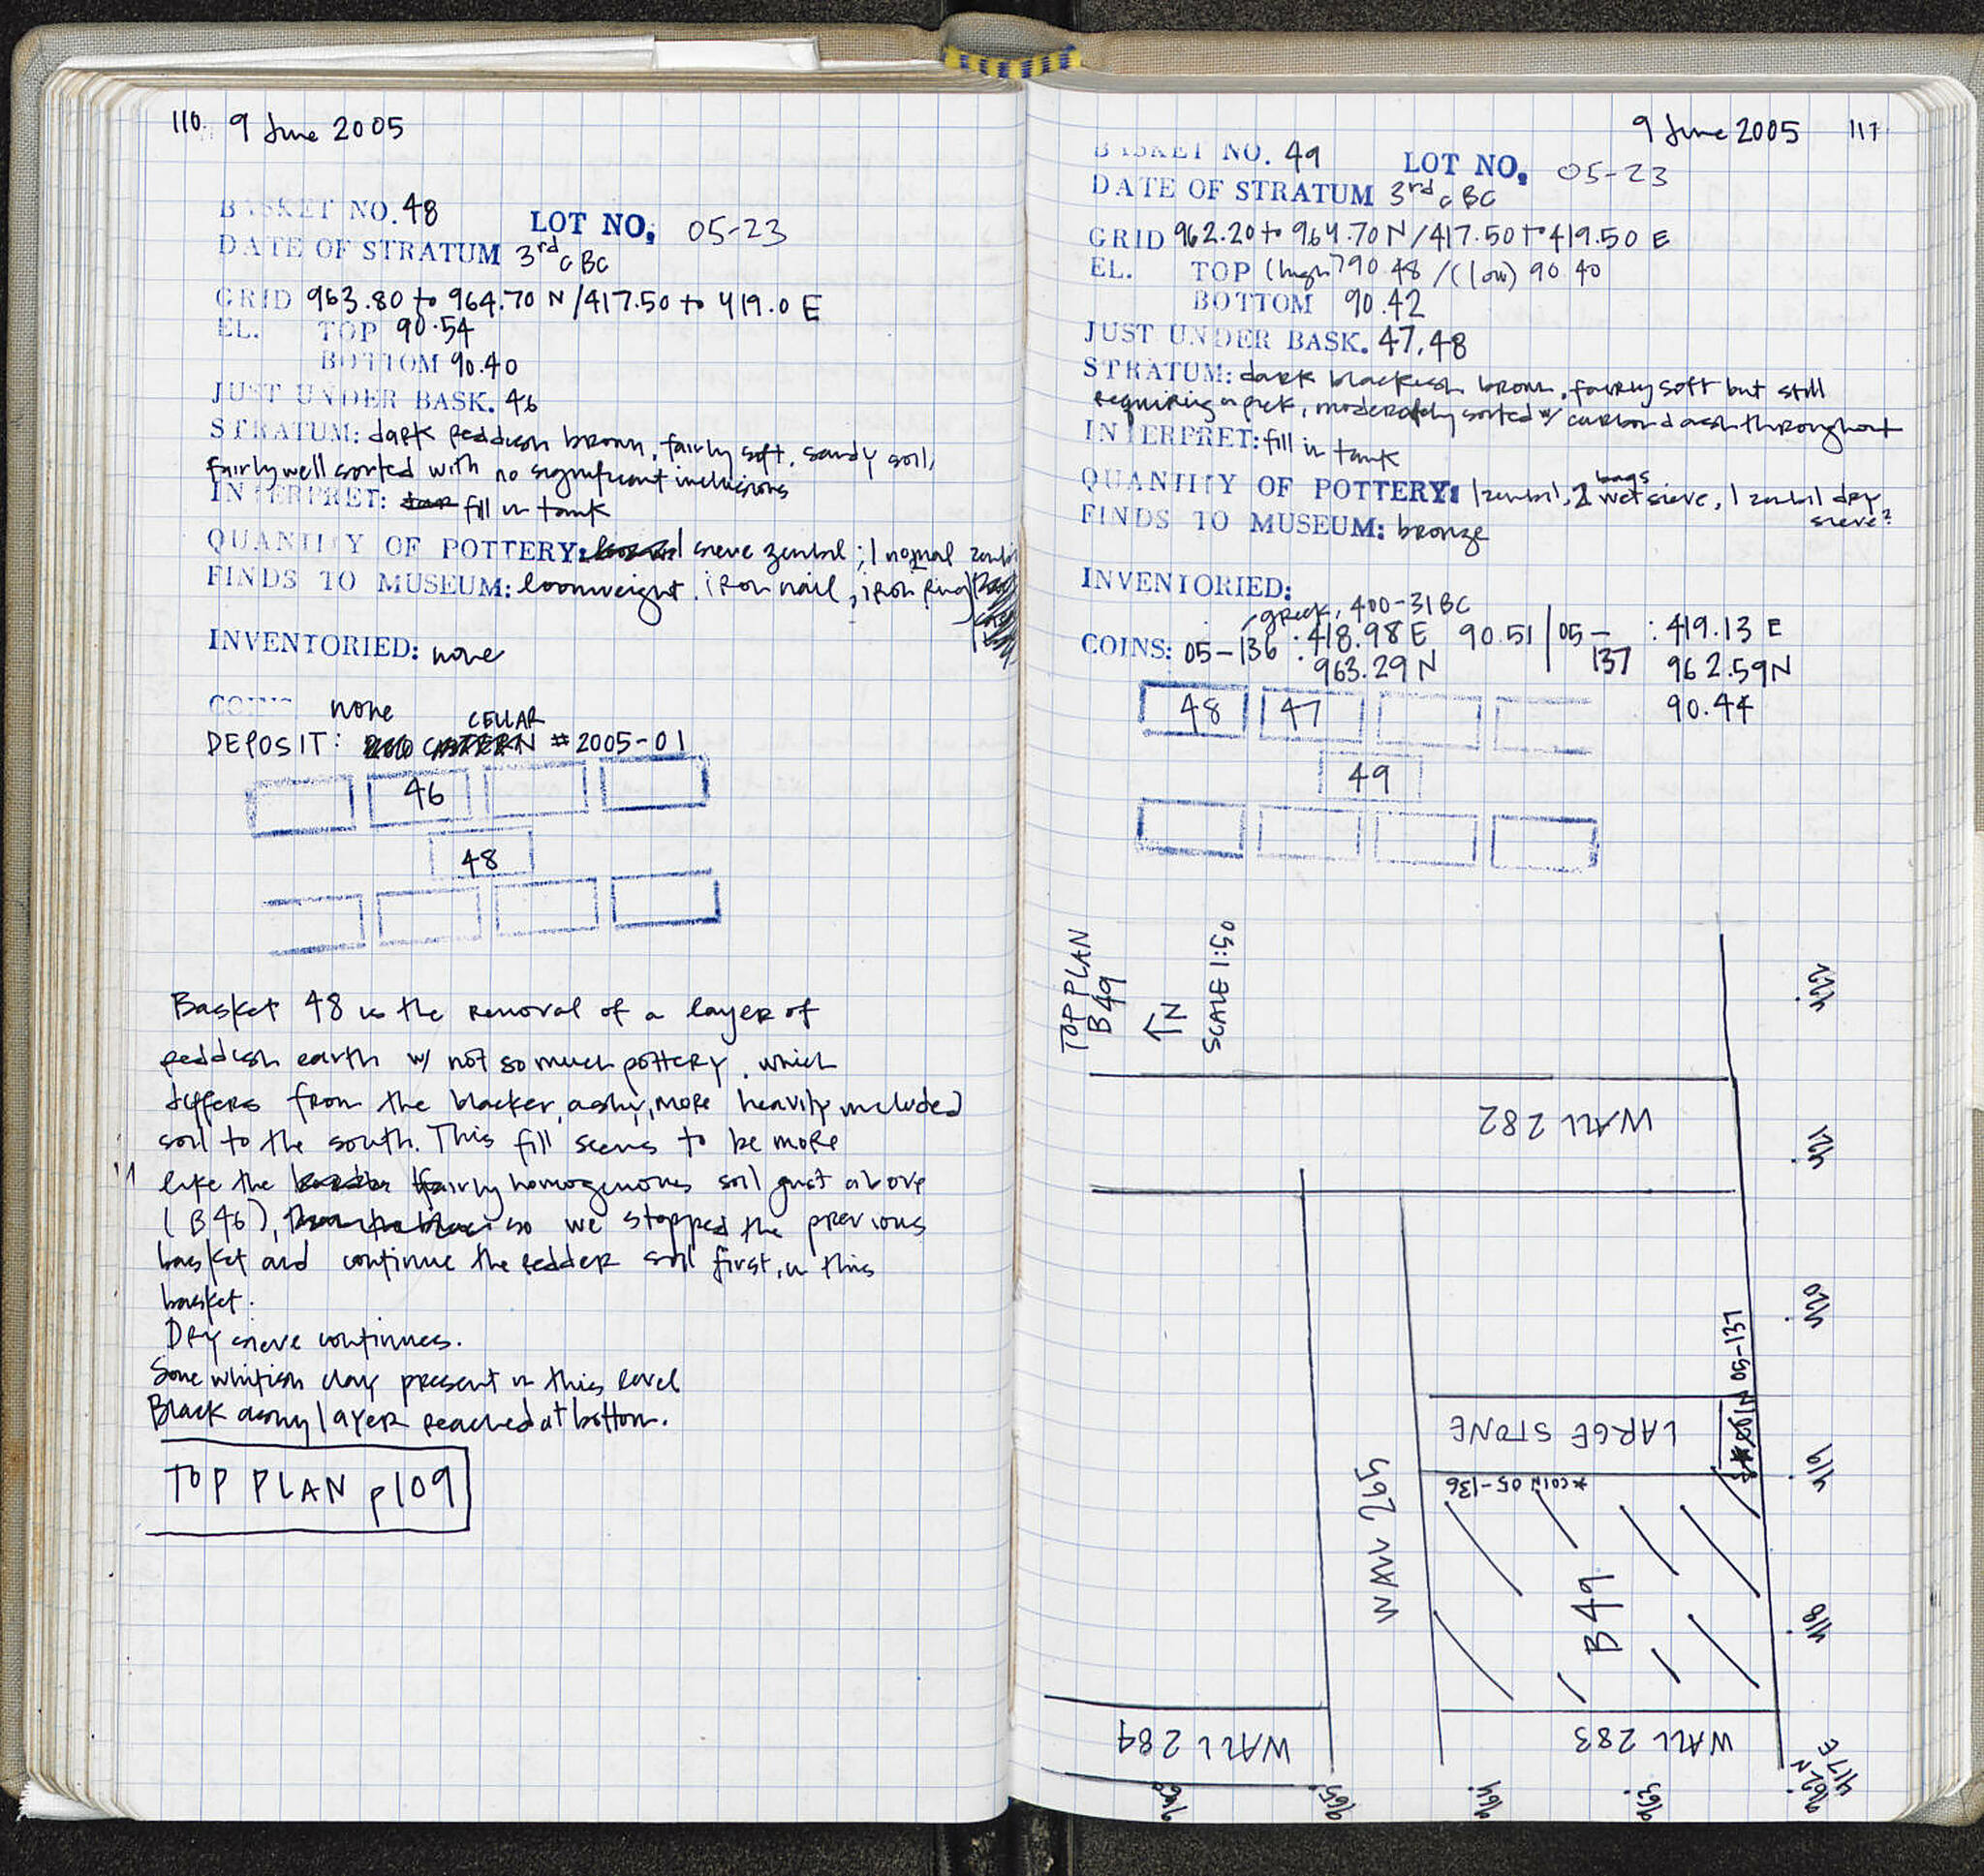 110. 9 June 2005
BASKET NO. 48
LOT NO. 05-23
DATE OF STRATUM 3rd c BC
GRID 963.80 to 964.70 N / 417.50 to 419.0 E
EL. TOP 90.54
BOTTOM 90.40
JUST UNDER BASK. 46
STRATUM: dark reddish brown, fairly soft, sandy soil,
fairly well sorted with no significant inclusions
INTERPRET: fill in tank
QUANTITY OF POTTERY: 1 sieve zembil; 1 normal zembil
FINDS TO MUSEUM: loomweight, iron nail, iron ring
INVENTORIED: none
COINS none
CELLAR
DEPOSIT: #2005-01
46
48
Basket 48 is the removal of a layer of
reddish earth w/ not so much pottery, which
differs from the blacker, ashy, more heavily included
soil to the south. This fill seems to be more
like the fairly homogenous soil just above
(B46), so we stopped the previous
basket and continue the redder soil first, in this
basket.
Dry sieve continues.
Some whitish clay present in this level
Black ashy layer reached at bottom.
TOP PLAN p109
9 June 2005 117
BASKET NO. 49
LOT NO. 05-23
DATE OF STRATUM 3rd c BC
GRID 962.20 to 964.70 N / 417.50 to 419.50 E
EL. TOP (high) 90.48 / (low) 90.40
BOTTOM 90.42
JUST UNDER BASK. 47, 48
STRATUM: dark blackish brown, fairly soft but still
requiring a pick, moderately sorted w/ carbon d ash throughout
INTERPRET: fill in tank
QUANTITY OF POTTERY: 1 zembil, 2 bags wet sieve, 1 zembil dry
sieve?
FINDS TO MUSEUM: bronze
INVENTORIED:
greek, 400-31 BC
COINS: 05-136 : 418.98 E 90.51 | 05- : 419.13 E
963.29 N 137 962.59 N
90.44
48 47
49
TOP PLAN
B49
N
SCALE 1:50
422
WALL 282
421
420
COIN 05-137
LARGE STONE
419
*COIN 05-136
WALL 265
B49
418
WALL 284
WALL 283
417 E
966 965 964 963 962 N